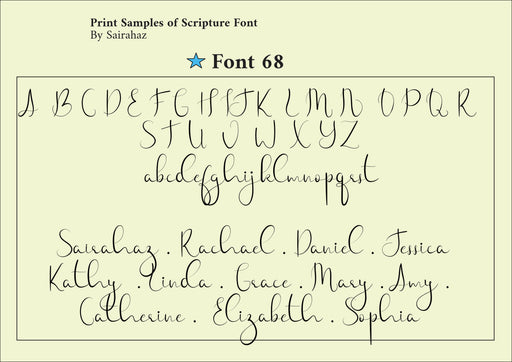 Print Samples of Scripture Font
By Sairahaz
Font 68
A B C D E F G H I J K L M N O P Q R
S T U V W X Y Z
abcdefghijklmnopqrst
Sairahaz . Rachael . Daniel . Jessica
Kathy . Linda . Grace . Mary . Amy .
Catherine . Elizabeth . Sophia